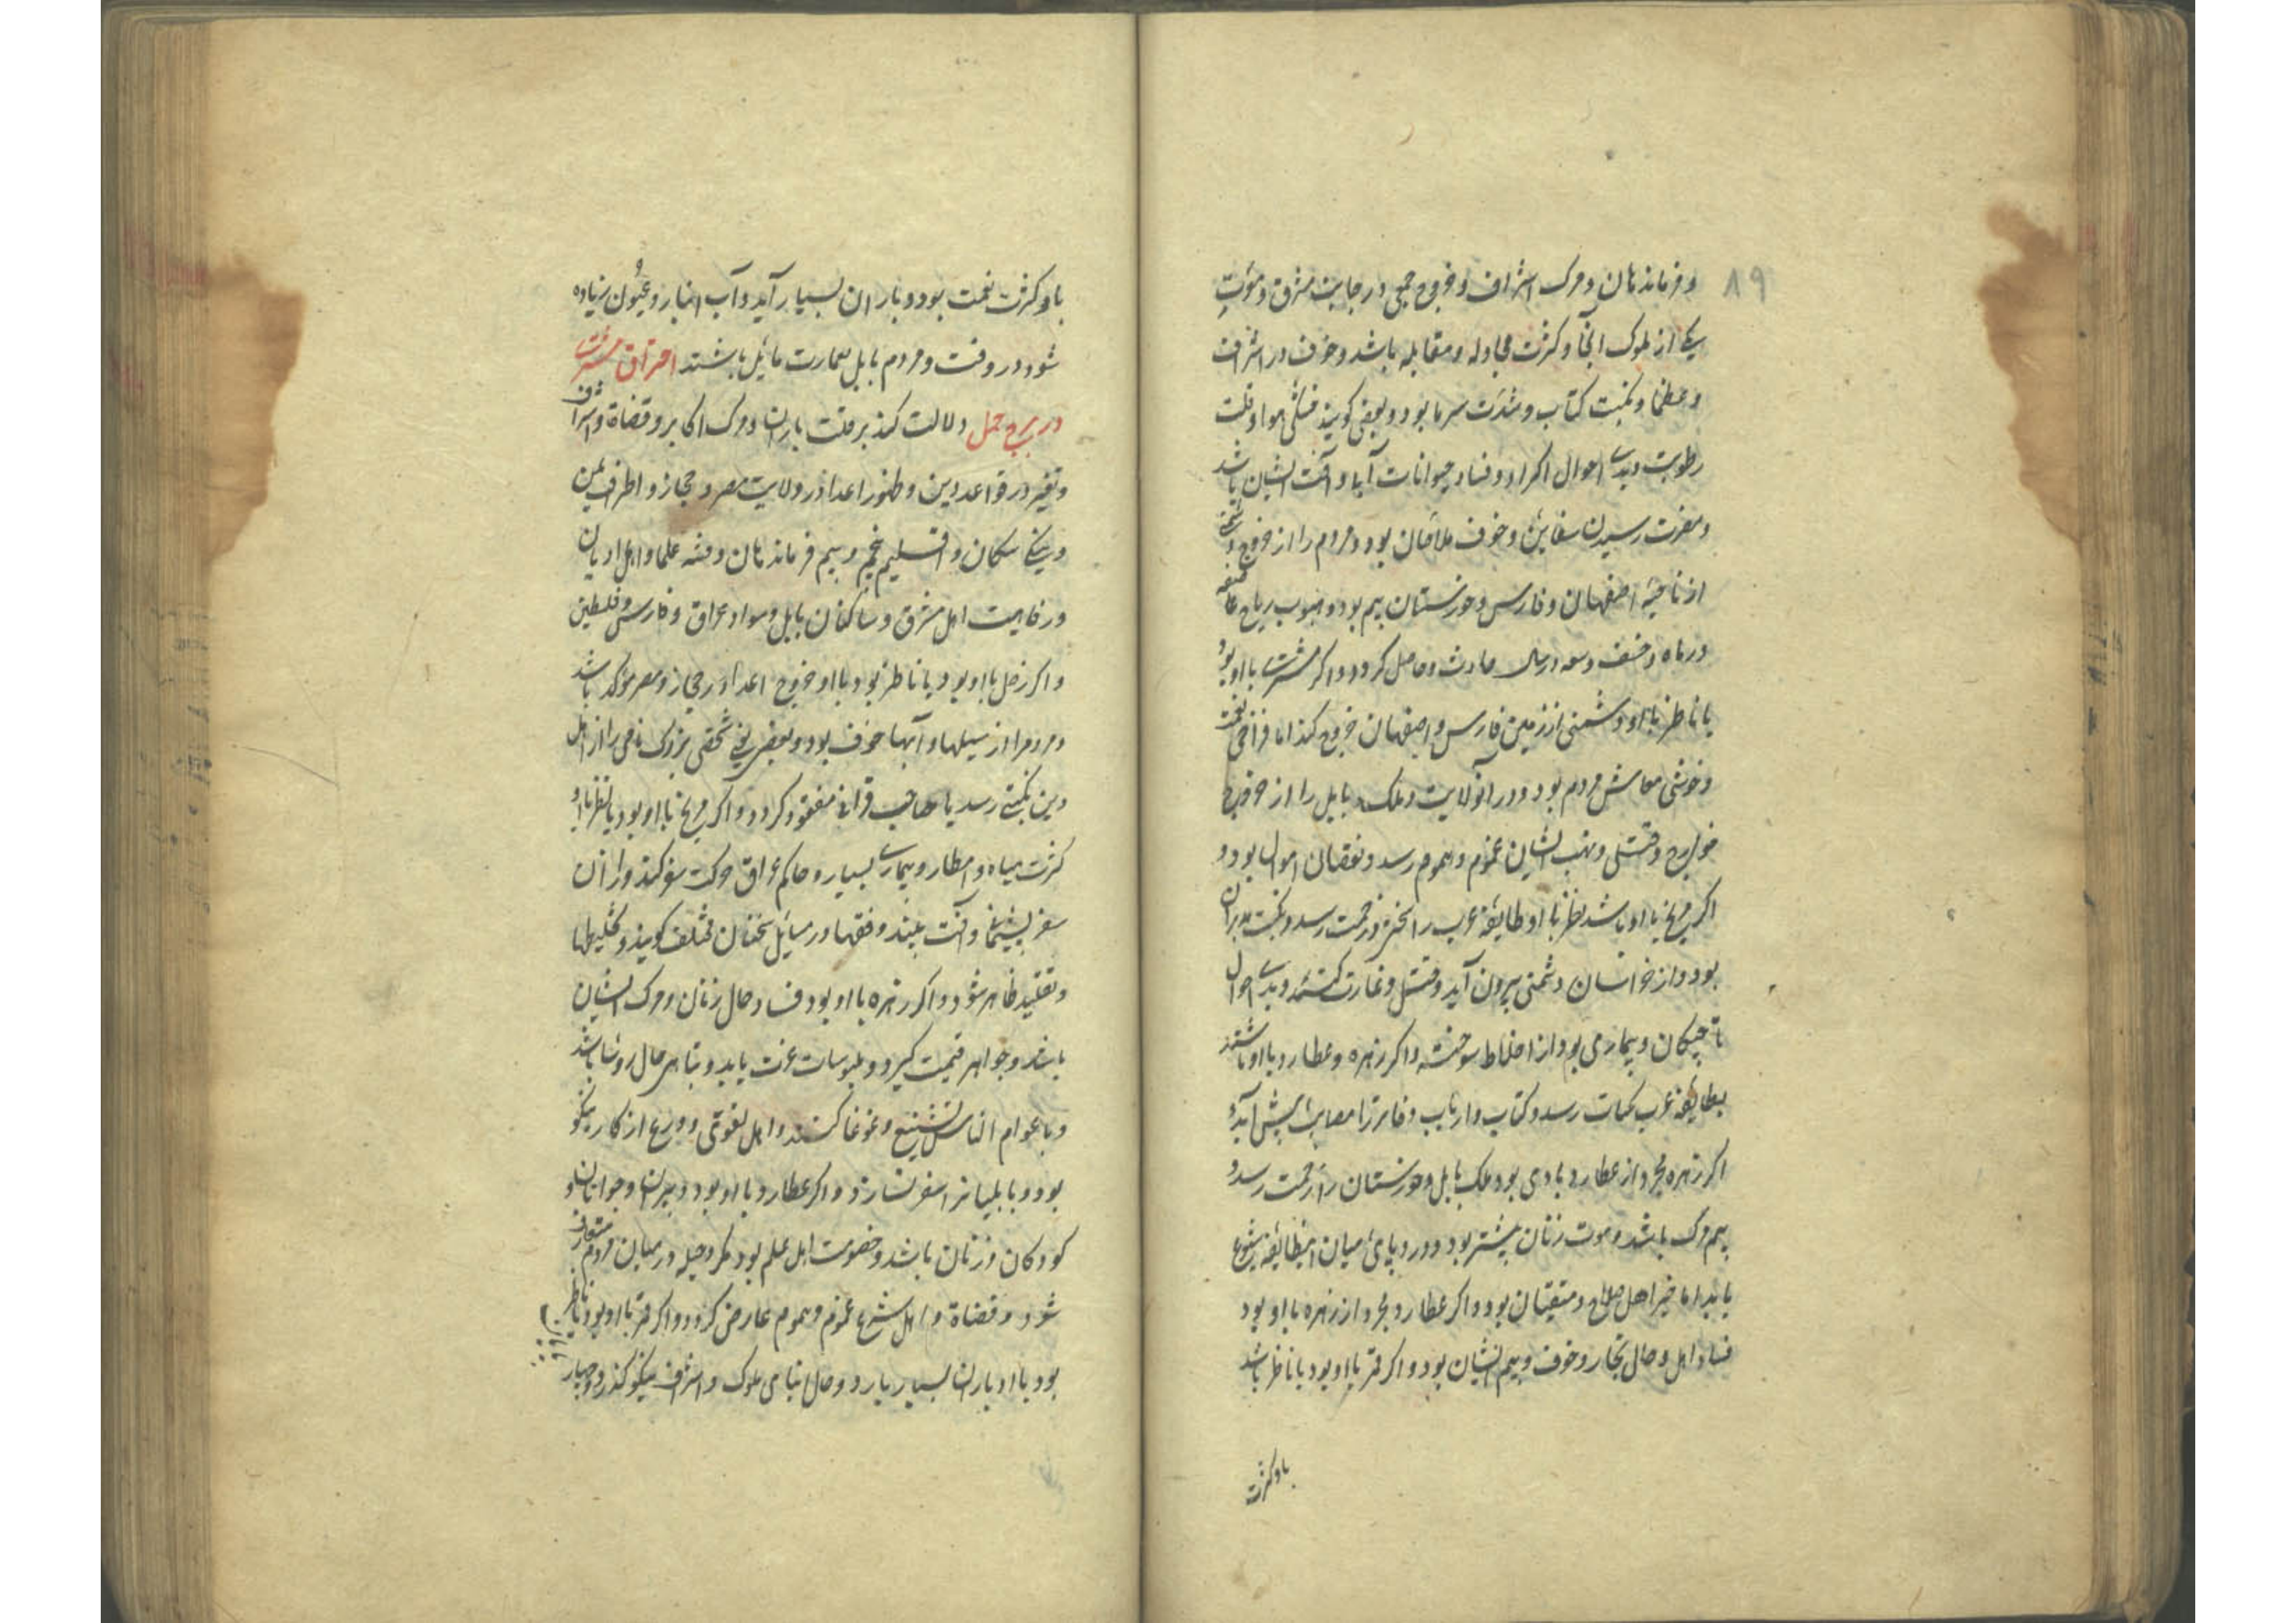 ۸۹
و فرماندهان و مرک اشراف و خروج جمعی در جانب مشرق و موت
یکی از ملوک آنجا و کثرت مجادله و مقابله باشد و خوف در اشراف
و عظما و نکبت کتاب و شدت سرما بود و بعضی کویند خشکی هوا و قلت
رطوبت و بدی احوال اکراد و فساد حیوانات آبی و آفت ایشان باشد
و مضرت رسیدن سفاین و خوف ملاحان بود و مردم را از خروج دشمن
از ناحیه اصفهان و فارس و خوزستان بیم بود و هبوب ریاح عاصفه
در ماه و خسف و سعه در سال حادث و حاصل کردد و اکر مشتری با او بود
یا ناظر با او دشمنی از زمین فارس و اصفهان خروج کند اما فراخی نعمت
و خوشی معاش مردم بود و در آن ولایت و ملک بابل را از خروج
خوارج و قتل و نهب ایشان غموم و هموم رسد و نقصان اموال بود و
اکر مریخ با او باشد نظر با او طایفه عرب را زحمت رسد و نکبت مدبران
بود و از خراسان دشمنی بیرون آید و قتل و غارت کنند و بدی احوال
تاجیکان و بیماری بود از اخلاط سوخته و اکر زهره و عطارد با او باشند
بطایفه عرب نکبات رسد و کتاب و ارباب دفاتر را مصایب پیش آید و
اکر زهره مجرد از عطارد با وی بود ملک بابل و خوزستان را زحمت رسد و
بیم مرک باشد و موت زنان بیشتر بود و درد پای میان اینطایفه شیوع
یابد اما خیر اهل صلاح و متقیان بود و اکر عطارد مجرد از زهره با او بود
فساد اهل و حال تجار و خوف و بیم ایشان بود و اکر قمر با او بود یا ناظر باشد
با و کثرت
با و کثرت نعمت بود و باران بسیار آید و آب انهار و عیون زیاده
شود در وقت و مردم بابل بعمارت مایل باشند احتراق مشتری
در برج حمل دلالت کند بر قلت باران و مرک اکابر و قضاة و اشراف
و تغیر در قواعد دین و ظهور اعدا در ولایت مصر و حجاز و اطراف یمن
و نیکی سکان و اقلیم پنجم و بیم فرماندهان و فتنه علما و اهل ادیان
و رفاهیت اهل مشرق و ساکنان بابل و سواد عراق و فارس و فلسطین
و اکر زحل با او بود یا ناظر بود با او خروج اعدا در حجاز و مصر مؤکد باشد
و مردم را از سیلها و آبها خوف بود و بعضی یعنی شخصی بزرک نامی را از اهل
دین نکبتی رسد یا صاحب قرانی مفقود کردد و اکر مریخ با او بود یا نظر با او
کثرت میاه و امطار و بیماری بسیار و حاکم عراق حرکت سفر کند و از آن
سفر پشیمانی و آفت بیند و فقها در مسایل سخنان مختلف کویند و تخلیطها
و تقلید ظاهر شود و اکر زهره با او بود فساد حال زنان و مرک ایشان
باشد و جواهر قیمت کیرد و ملبوسات عزت یابد و تباهی حال روسا باشد
و با عوام الناس تشنیع و غوغا کنند و اهل تقوی و ورع از کار نیکو
بود و بابلیانرا سفر نسازد و اکر عطارد با او بود دبیران و جوانان و
کودکان و زنان باشد و خصومت اهل علم بود و مکر و حیله در میان مردم متعارف
شود و قضاة و اهل شرع غموم و هموم عارض کردد و اکر قمر با او بود یا ناظر
بود با او باران بسیار بارد و حال ابنای ملوک و اشراف نیکو کذرد و